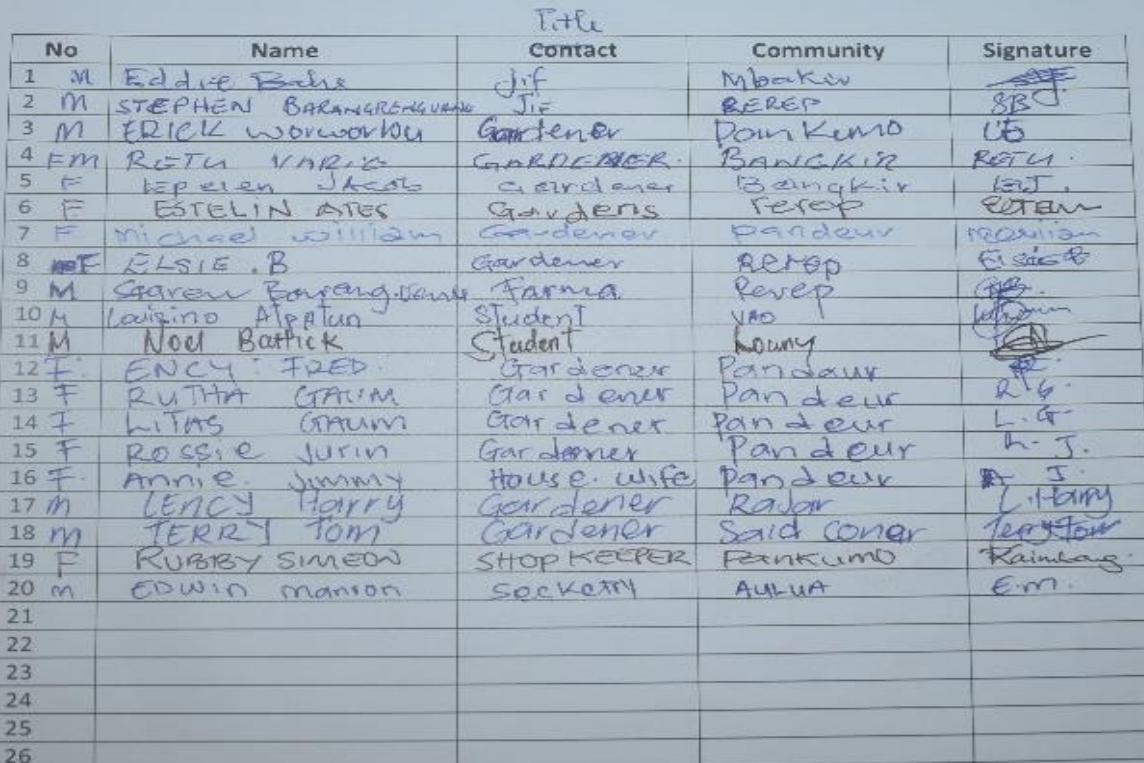 Title
No Name Contact Community Signature
1 M Eddie Jif Mbakir
2 M STEPHEN JIF REREP SB
3 M ERICK worworbu Gardener Pankumo
4 FM RETU VARIC GARDENER. BANGKIR RETU.
5 F Lepelen JAcob Gardener Bangkir
6 F ESTELIN ATES Gardens rerep
7 F Michael william Gardener pandeur
8 F ELSIE . B Gardener Rerep Elsie B
9 M Farma Rerep
10 M Louisino Alpatun Student VAO
11 M Noel Battick Student Louny
12 F. ENCY FRED. Gardener Pandaur
13 F RUTHA GAUIM Gardener Pandeur R. G.
14 F LITAS GAUM Gardener Pandeur L. G
15 F ROSSIE Jurin Gardener Pandeur R. J.
16 F. Annie. Jimmy House. wife Pandeur A J.
17 M LENCY Harry Gardener Rajar L. Harry
18 M TERRY Tom Gardener Said coner Terry Tom
19 F RUBBY SIMEON SHOP KEEPER PANKUMO
20 M EDWIN manron AULUA E.m.
21
22
23
24
25
26